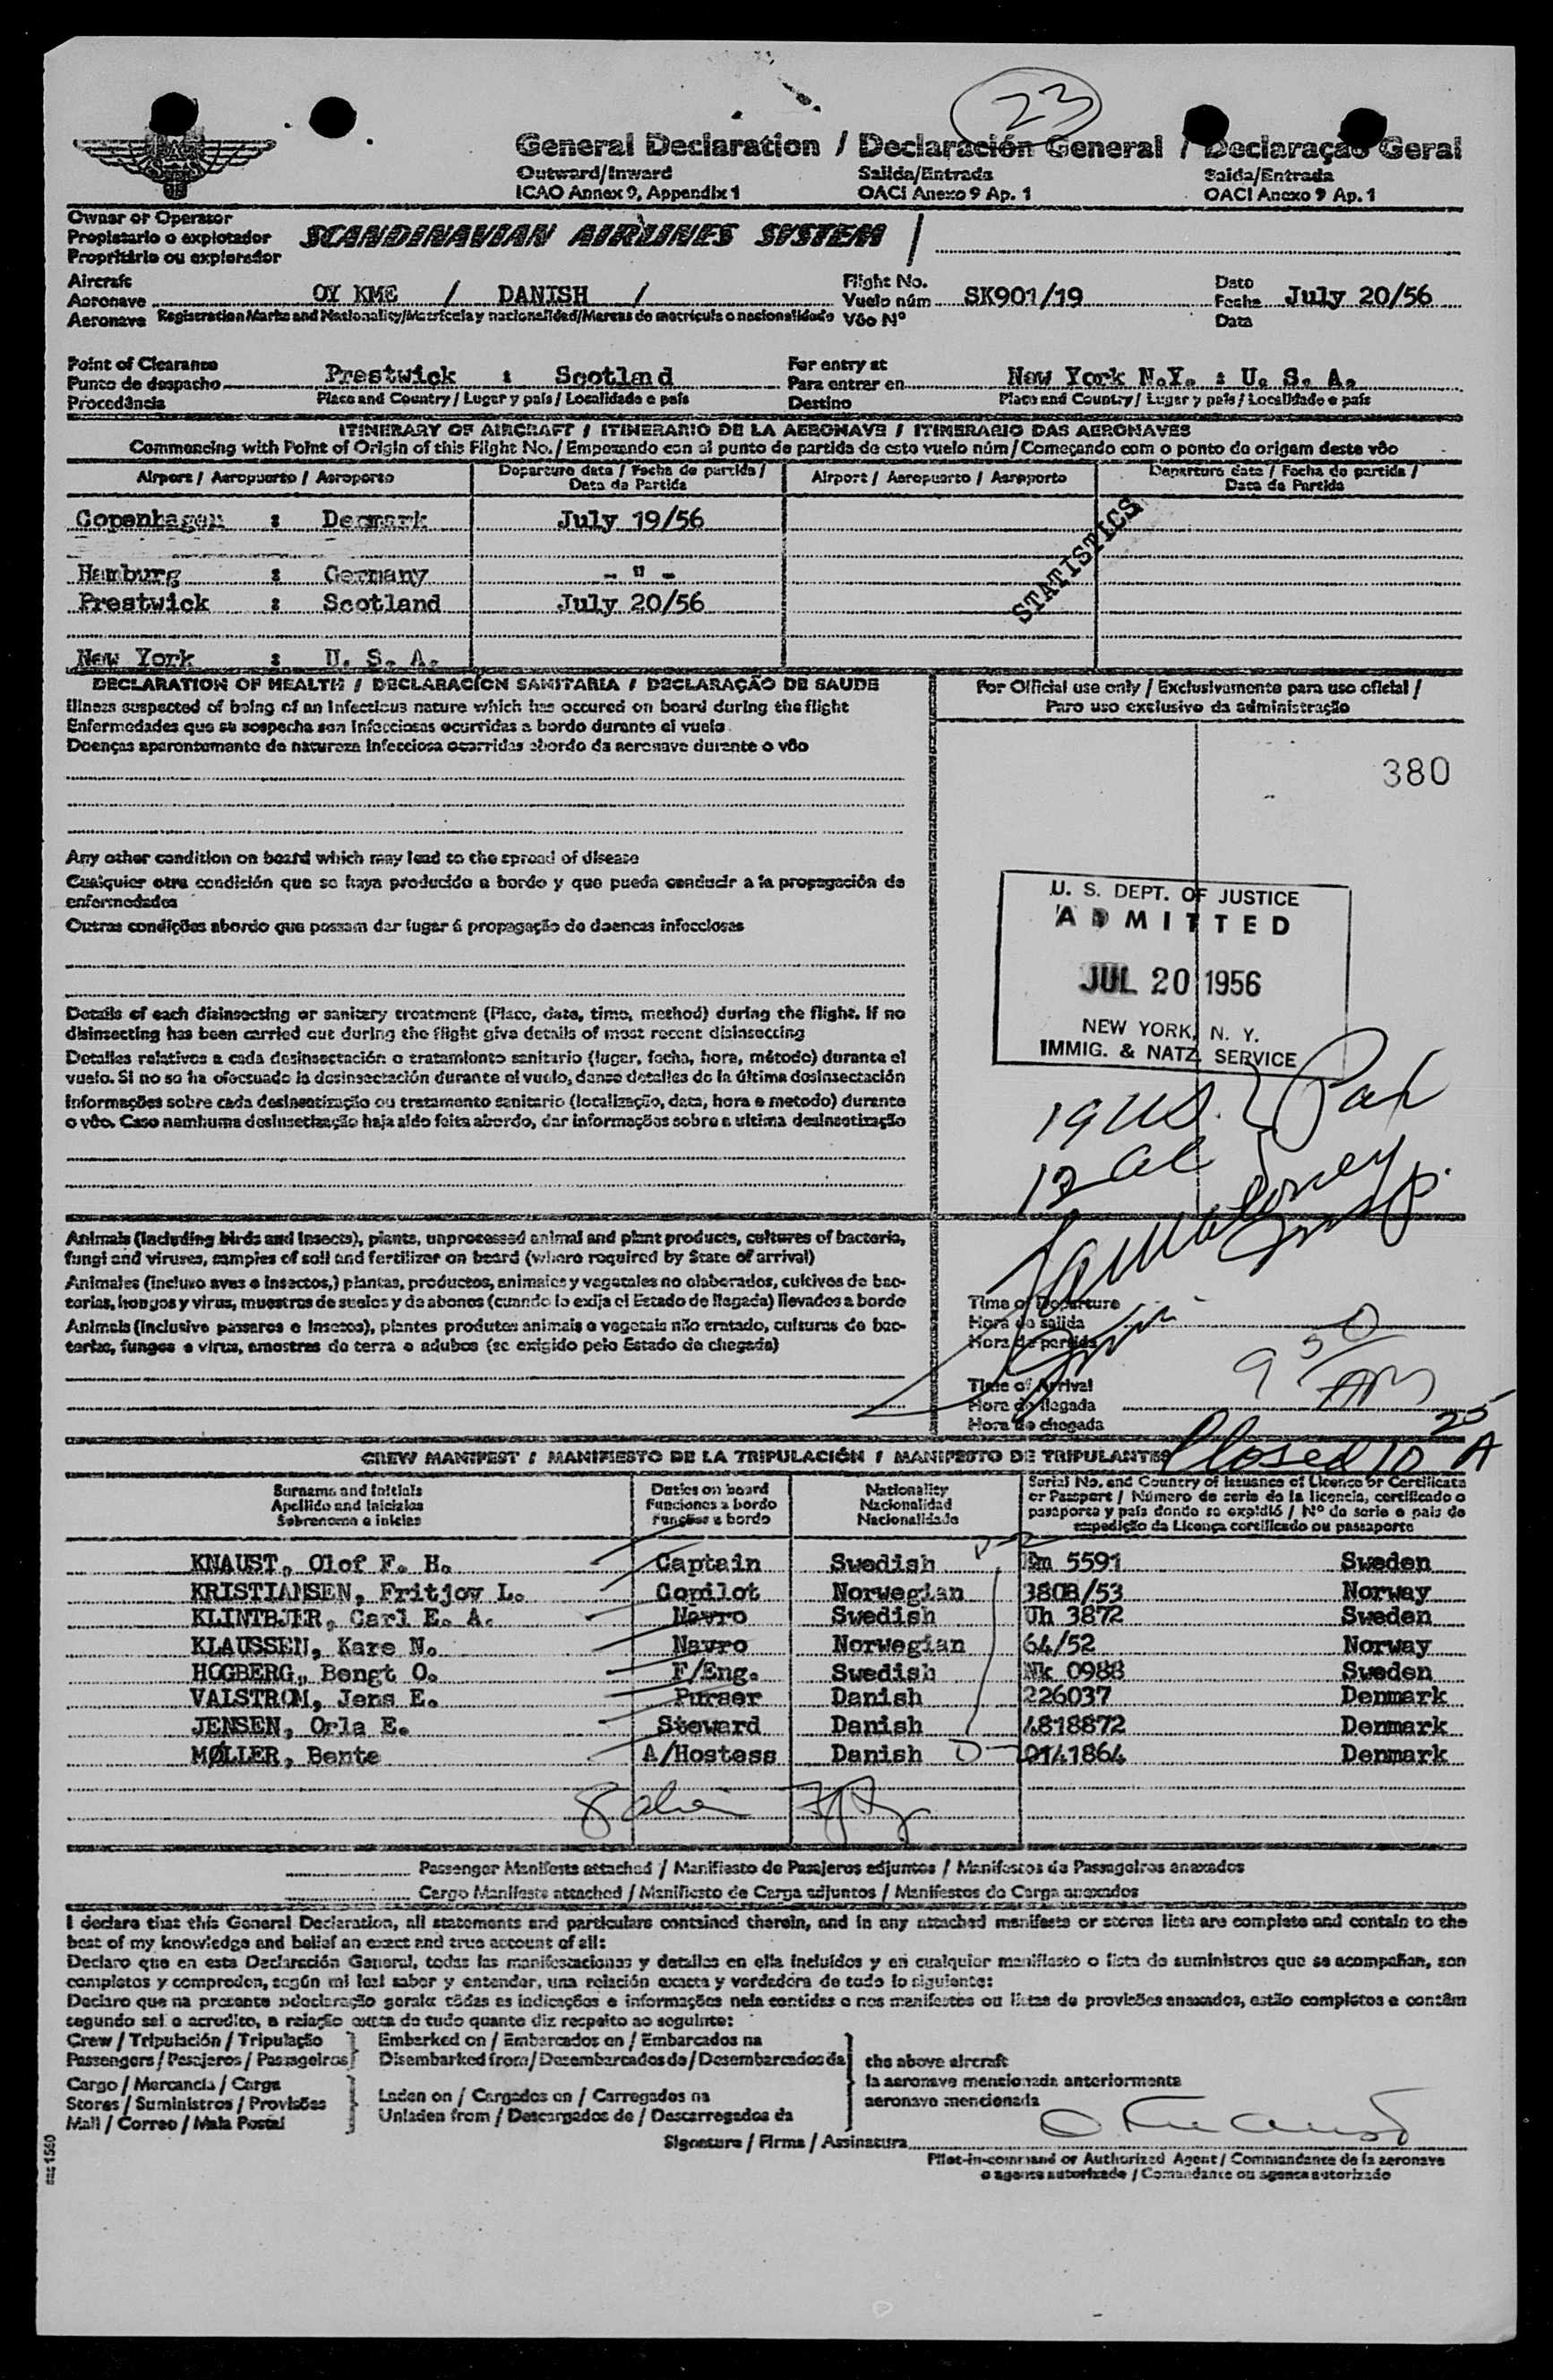 23
General Declaration / Declaración General / Declaração Geral
Outward/Inward Salida/Entrada Saida/Entrada
ICAO Annex 9, Appendix 1 OACI Anexo 9 Ap. 1 OACI Anexo 9 Ap. 1
Owner or Operator
Propietario o explotador SCANDINAVIAN AIRLINES SYSTEM /
Propritário ou explorador
Aircraft Flight No. Date
Aeronave OY KME / DANISH / Vuelo núm SK901/19 Fecha July 20/56
Aeronave Registration Marks and Nationality/Matrícula y nacionalidad/Marcas de matricula o nacionalidade Vôo Nº Data
Point of Clearance For entry at
Punto de despacho Prestwick : Scotland Para entrar en New York N.Y. : U. S. A.
Procedência Place and Country / Lugar y país / Localidade e país Destino Place and Country / Lugar y país / Localidade e país
ITINERARY OF AIRCRAFT / ITINERARIO DE LA AERONAVE / ITINERARIO DAS AERONAVES
Commencing with Point of Origin of this Flight No. / Empezando con el punto de partida de este vuelo núm / Começando com o ponto do origem deste vôo
Airport / Aeropuerto / Aeroporto Departure date / Fecha de partida / Data da Partida Airport / Aeropuerto / Aeroporto Departure date / Fecha de partida / Data da Partida
Copenhagen : Denmark July 19/56
Hamburg : Germany - " -
Prestwick : Scotland July 20/56
New York : U. S. A.
STATISTICS
DECLARATION OF HEALTH / DECLARACÍON SANITARIA / DECLARAÇÃO DE SAUDE
Illness suspected of being of an infectious nature which has occured on board during the flight
Enfermedades que se sospecha son infecciosas ocurridas a bordo durante el vuelo
Doenças aparentemente de natureza infecciosa ocorridas abordo da aeronave durante o vôo
For Official use only / Exclusivamente para uso oficial /
Para uso exclusivo da administração
380
Any other condition on board which may lead to the spread of disease
Cualquier otra condición que se haya producido a bordo y que pueda conducir a la propagación de
enfermedades
Outras condições abordo que possam dar lugar á propagação do doencas infecciosas
U. S. DEPT. OF JUSTICE
ADMITTED
JUL 20 1956
NEW YORK, N. Y.
IMMIG. & NATZ. SERVICE
Details of each disinsecting or sanitary treatment (Place, date, time, method) during the flight. If no
disinsecting has been carried out during the flight give details of most recent disinsecting
Detalles relativos a cada desinsectación o tratamiento sanitario (lugar, fecha, hora, método) durante el
vuelo. Si no se ha efectuado la desinsectación durante el vuelo, danse detalles de la última desinsectación
Informações sobre cada desinsetização ou tratamento sanitario (localização, data, hora e metodo) durante
o vôo. Caso nemhuma desinsetização haja sido feita abordo, dar informações sobre a ultima desinsetização
19 US.
12 al
Animals (including birds and insects), plants, unprocessed animal and plant products, cultures of bacteria,
fungi and viruses, samples of soil and fertilizer on board (where required by State of arrival)
Animales (incluso aves e insectos,) plantas, productos, animales y vegetales no elaborados, cultivos de bac-
terias, hongos y virus, muestras de suelos y de abonos (cuando lo exija el Estado de llegada) llevados a bordo
Animais (inclusive pássaros e insetos), plantes produtos animais e vegetais não tratado, culturas de bac-
terias, fungos e virus, amostras de terra e adubos (se exigido pelo Estado de chegada)
Time of Departure
Hora de salida
Hora de partida
Time of Arrival
Hora de llegada
Hora de chegada
9 50 AM
Closed 10 25 A
CREW MANIFEST / MANIFIESTO DE LA TRIPULACIÓN / MANIFESTO DE TRIPULANTES
Surname and Initials Duties on board Nationality Serial No. and Country of Issuance of Licence or Certificate
Apellido and Iniciales Funciones a bordo Nacionalidad or Passport / Número de serie de la licencia, certificado o
Sobrenome e inicias Funções a bordo Nacionalidade pasaporte y país donde se expidió / Nº de serie e pais de
expedição da Licença certificado ou passaporte
KNAUST, Olof F. H. Captain Swedish Em 5591 Sweden
KRISTIANSEN, Fritjov L. Copilot Norwegian 3808/53 Norway
KLINTBJER, Carl E. A. Navro Swedish Uh 3872 Sweden
KLAUSSEN, Kare N. Navro Norwegian 64/52 Norway
HOGBERG, Bengt O. F/Eng. Swedish Nk 0988 Sweden
VALSTROM, Jens E. Purser Danish 226037 Denmark
JENSEN, Orla E. Steward Danish 4818872 Denmark
MØLLER, Bente A/Hostess Danish D 0141864 Denmark
Passenger Manifests attached / Manifiesto de Pasajeros adjuntos / Manifestos de Passageiros anexados
Cargo Manifests attached / Manifiesto de Carga adjuntos / Manifestos de Carga anexados
I declare that this General Declaration, all statements and particulars contained therein, and in any attached manifests or stores lists are complete and contain to the
best of my knowledge and belief an exact and true account of all:
Declaro que en esta Declaración General, todas las manifestaciones y detalles en ella incluídos y en cualquier manifiasto o lista de suministros que se acompañan, son
completos y comproden, según mi leal saber y entender, una relación exacta y verdadera de todo lo siguiente:
Declaro que na presente »declaração geral« tôdas as indicações e informações nela contidas e nos manifestos ou listas de provisões anexados, estão completos e contêm
segundo sei e acredito, a relação exata de tudo quanto diz respeito ao seguinte:
Crew / Tripulación / Tripulação Embarked on / Embarcados en / Embarcados na
Passengers / Pasajeros / Passageiros Disembarked from / Desembarcados de / Desembarcados da the above aircraft
Cargo / Mercancía / Carga la aeronave mencionada anteriormente
Stores / Suministros / Provisões Laden on / Cargados en / Carregados na aeronave mencionada
Mail / Correo / Mala Postal Unladen from / Descargados de / Descarregados da
Signature / Firma / Assinatura O Knaust
Pilot-in-command or Authorized Agent / Commandante de la aeronave
o agente autorizado / Comandante ou agente autorizado
sas 1560